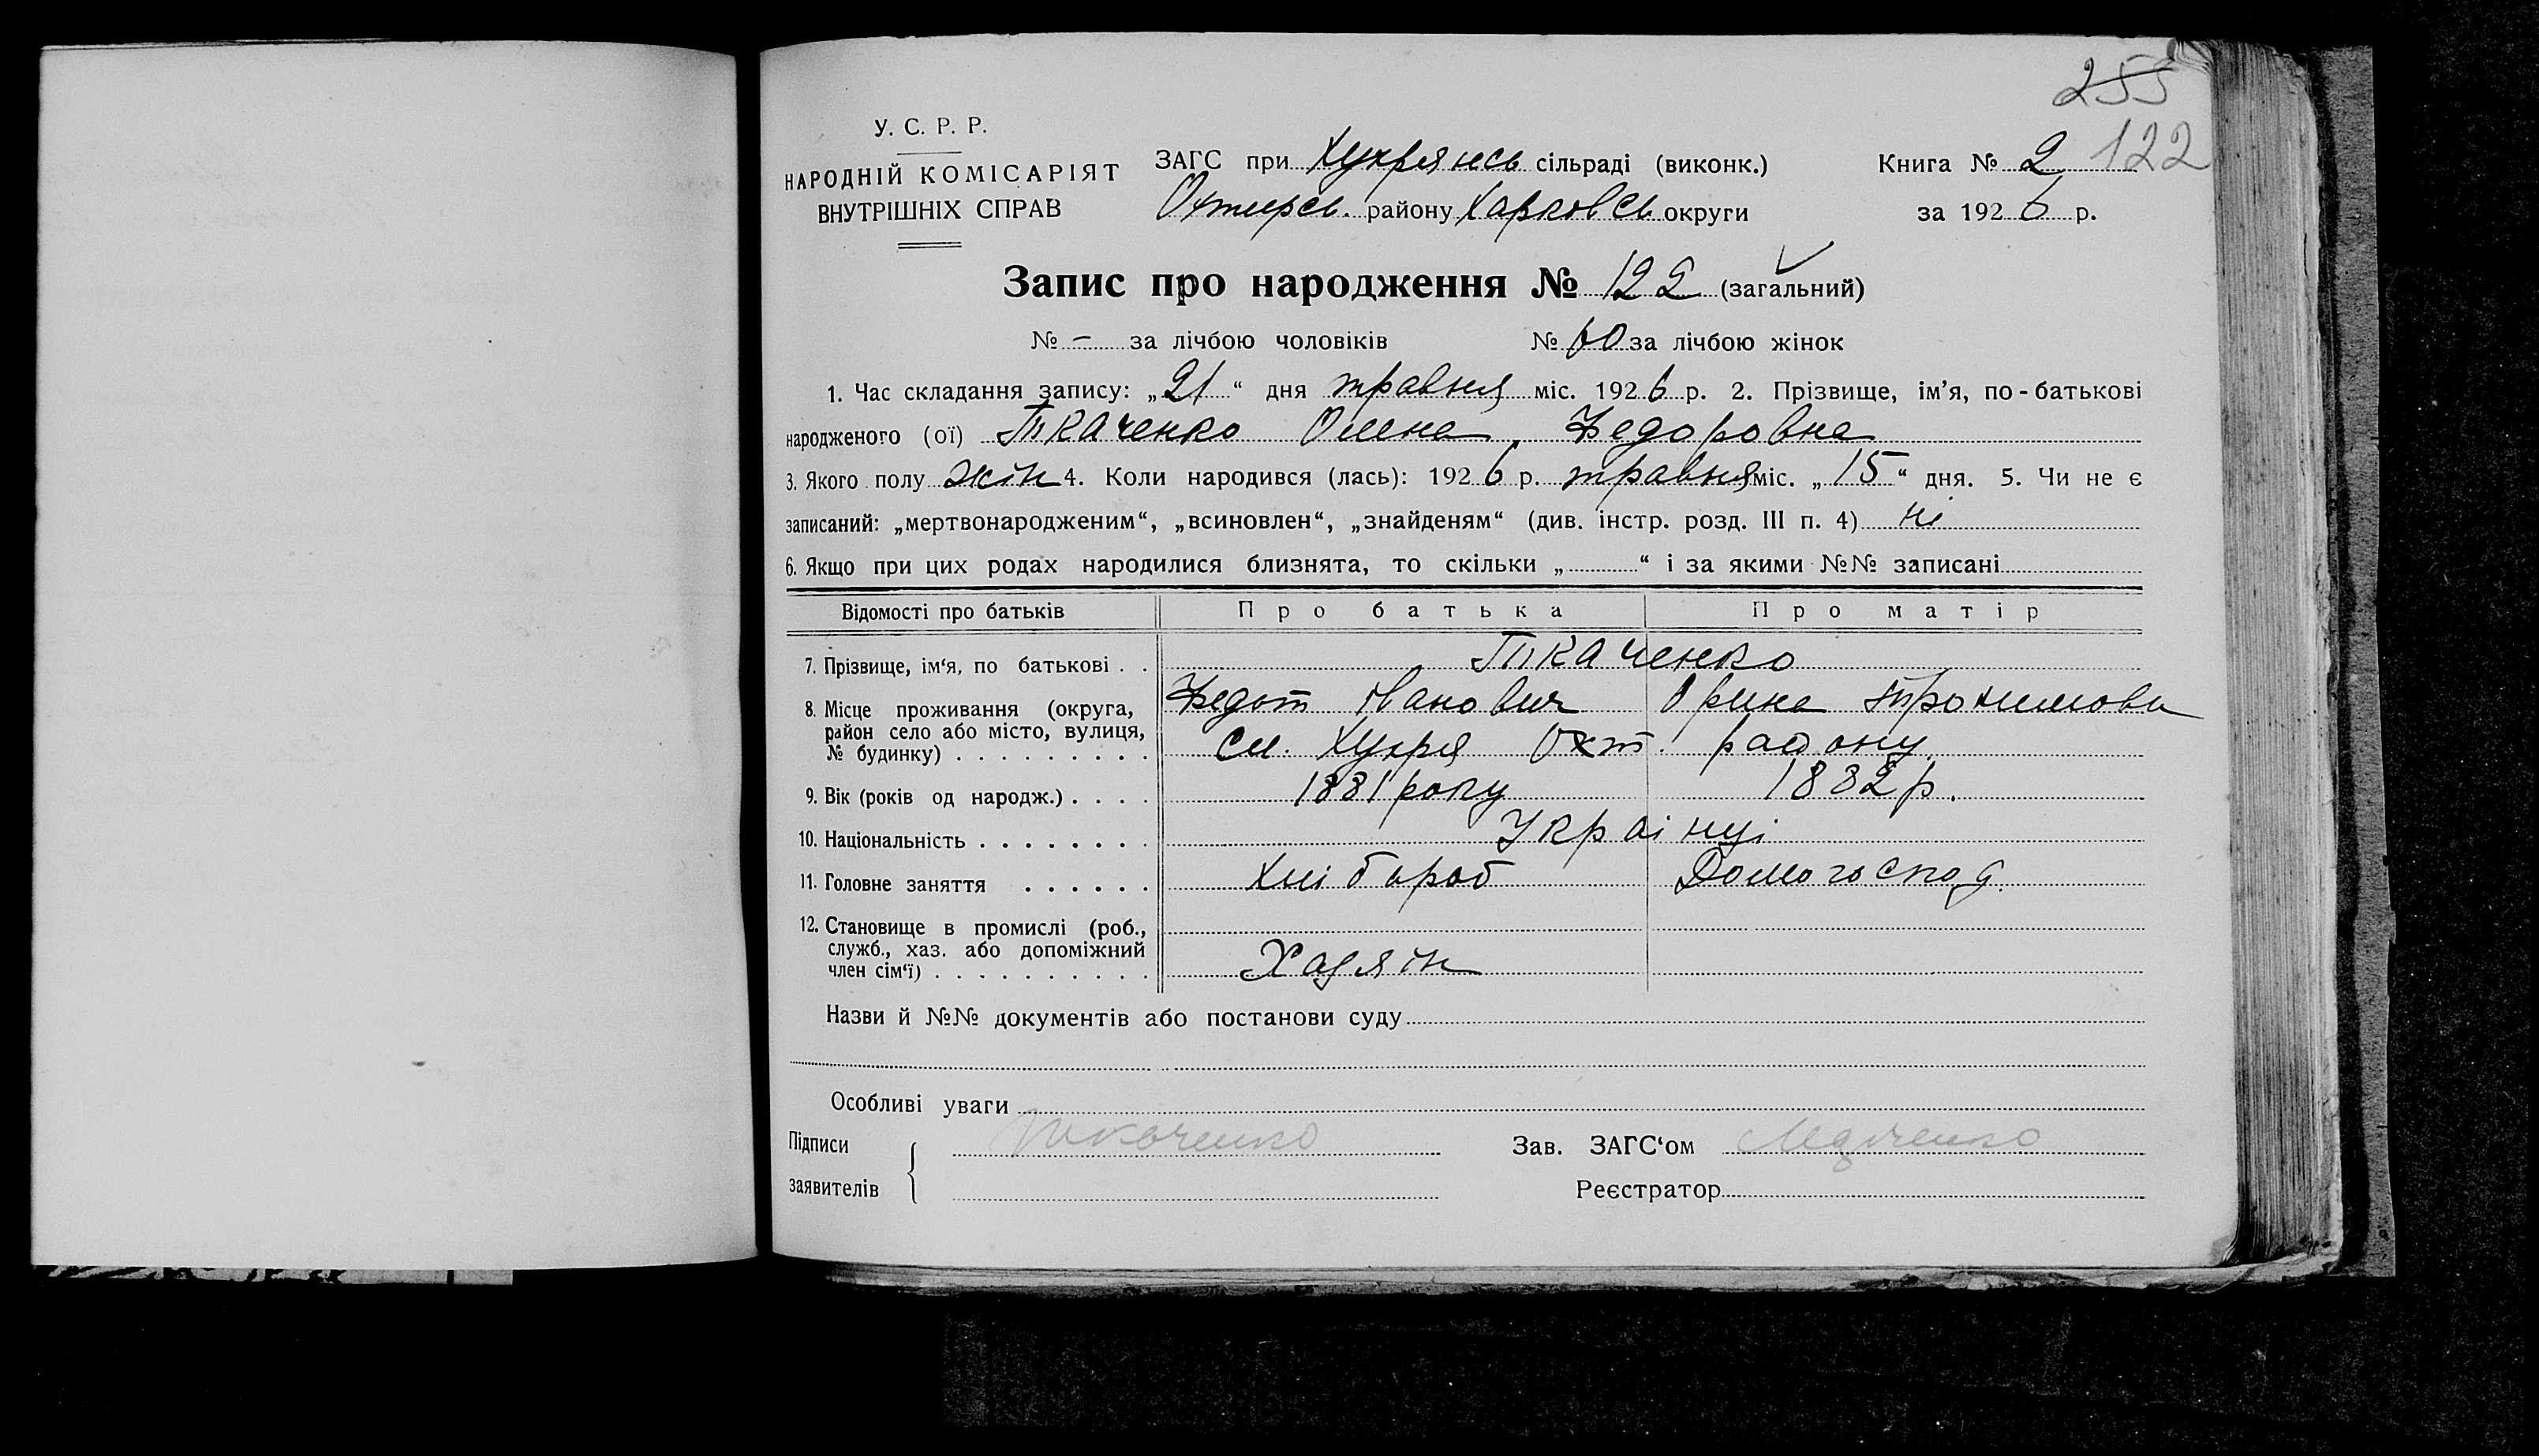 255
У. С. Р. Р.
НАРОДНІЙ КОМІСАРІЯТ
ВНУТРІШНІХ СПРАВ
ЗАГС при Хухрянсь сільраді (виконк.)
Охтирсь. району Харковсь округи
Книга № 2 122
за 1926 р.
Запис про народження № 122 (загальний)
№ – за лічбою чоловіків № 60 за лічбою жінок
1. Час складання запису: „21“ дня травня міс. 1926 р. 2. Прізвище, ім’я, по-батькові
народженого (ої) Ткаченко Олена Федоровна
3. Якого полу жін 4. Коли народився (лась): 1926 р. травня міс. „15“ дня. 5. Чи не є
записаний: „мертвонародженим“, „всиновлен“, „знайденям“ (див. інстр. розд. III п. 4) ні
6. Якщо при цих родах народилися близнята, то скільки „ “ і за якими №№ записані
Відомості про батьків Про батька Про матір
7. Прізвище, ім‘я, по батькові . . Ткаченко
Федот Іванович Орина Трохимовн
8. Місце проживання (округа,
район село або місто, вулиця,
№ будинку) . . . . . . . . . сл. Хухря Охт. району
9. Вік (років од народж.) . . . . 1881 року 1882 р.
10. Національність . . . . . . . . Украінці
11. Головне заняття . . . . . . Хлібороб Домогоспод.
12. Становище в промислі (роб.,
служб., хаз. або допоміжний
член сім‘ї) . . . . . . . . . . Хазяін
Назви й №№ документів або постанови суду
Особливі уваги
Підписи Ткаченко Зав. ЗАГС‘ом
заявителів Реєстратор